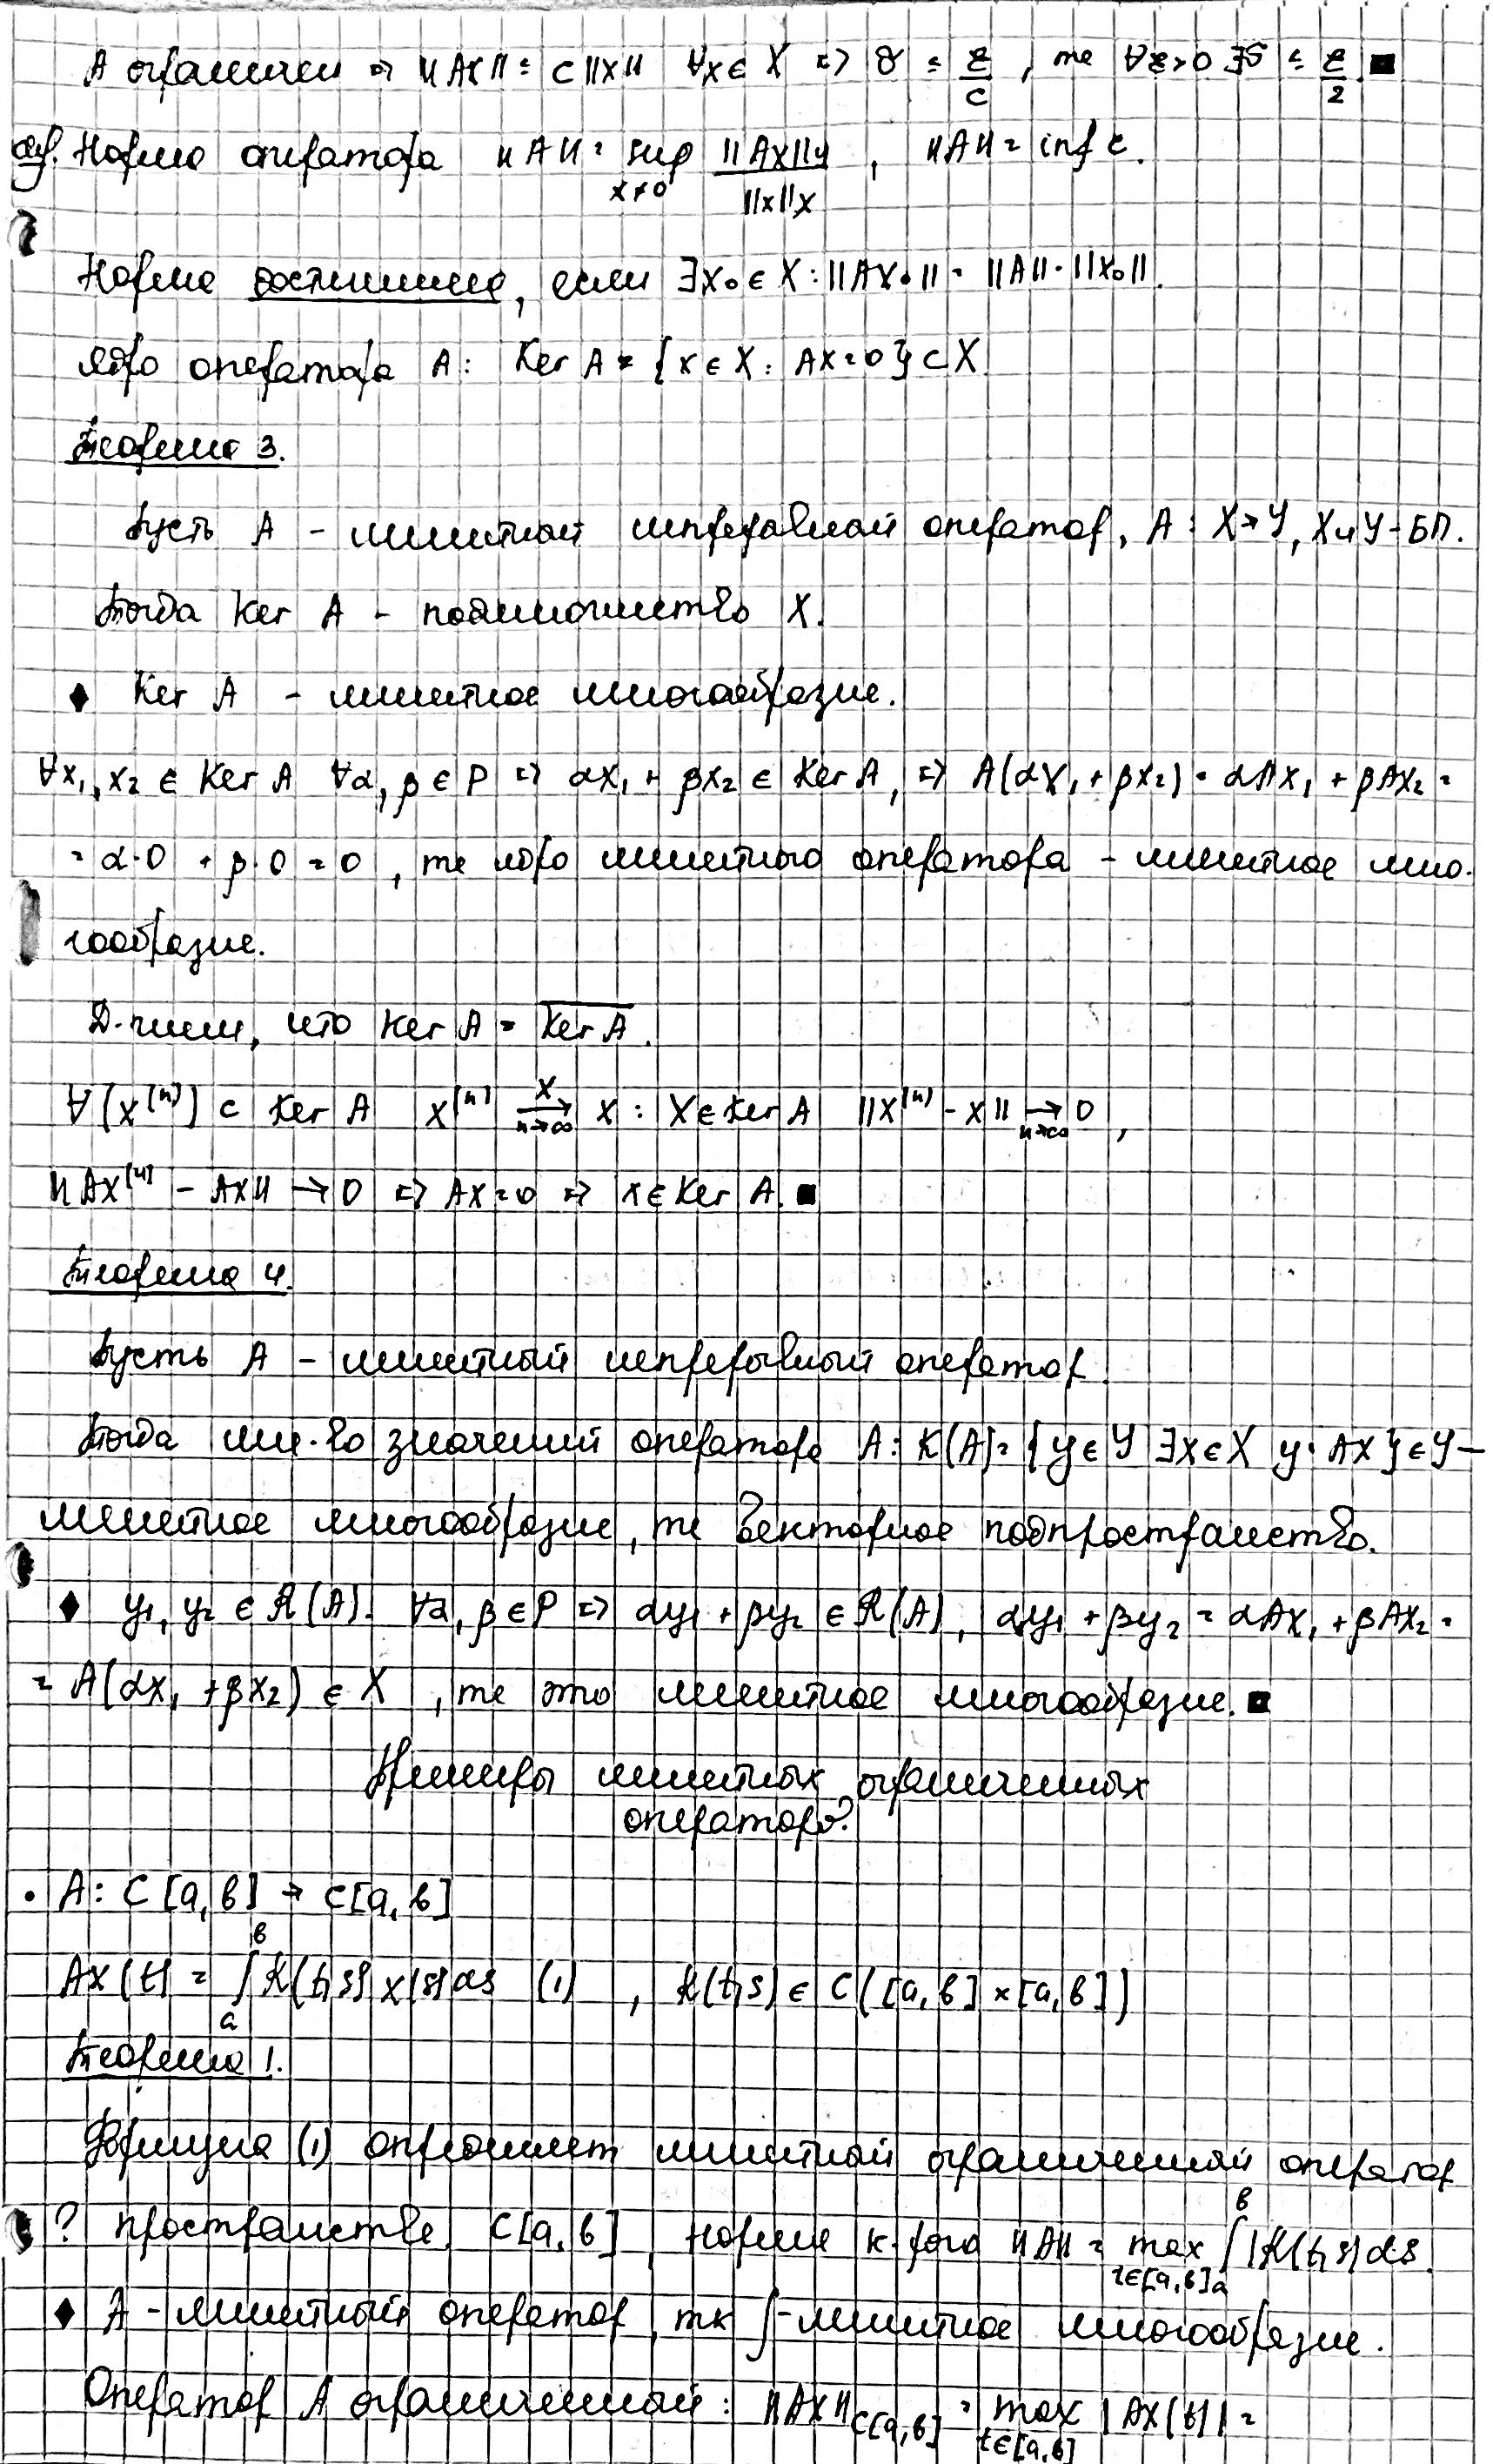 A ограничен ⇒ ||Ax|| ≤ c||x|| ∀x ∈ X ⇒ δ ≤ ε/c, те ∀ε>0 ∃δ ≤ ε/2 ■
def. Норма оператора ||A|| = sup_{x≠0} ||Ax||_Y / ||x||_X, ||A|| = inf c.
Норма достижима, если ∃x₀ ∈ X : ||Ax₀|| = ||A||·||x₀||.
Ядро оператора A: Ker A = {x ∈ X : Ax=0} ⊂ X
Теорема 3.
Пусть A – линейный непрерывный оператор, A : X → Y, X и Y – БП.
Тогда Ker A – подмножество X.
♦ Ker A – линейное многообразие.
∀x₁, x₂ ∈ Ker A ∀α, β ∈ P ⇒ αx₁ + βx₂ ∈ Ker A, ⇒ A(αx₁ + βx₂) = αAx₁ + βAx₂ =
= α·0 + β·0 = 0, те ядро линейного оператора – линейное мно-
гообразие.
Д-жем, что Ker A = \overline{Ker A}.
∀(x^{(n)}) ⊂ Ker A x^{(n)} →^{X}_{n→∞} x : x ∈ Ker A ||x^{(n)} - x|| →_{n→∞} 0,
||Ax^{(n)} – Ax|| → 0 ⇒ Ax=0 ⇒ x ∈ Ker A. ■
Теорема 4.
Пусть A – линейный непрерывный оператор.
Тогда мн-во значений оператора A: R(A) = {y ∈ Y ∃x ∈ X y = Ax} ∈ Y –
линейное многообразие, те векторное подпространство.
♦ y₁, y₂ ∈ R(A). ∀α, β ∈ P ⇒ αy₁ + βy₂ ∈ R(A), αy₁ + βy₂ = αAx₁ + βAx₂ =
= A(αx₁ + βx₂) ∈ X, те это линейное многообразие. ■
Примеры линейных ограниченных
операторов.
• A: C[a, b] → C[a, b]
Ax(t) = ∫_a^b K(t, s) x(s) ds (1), K(t, s) ∈ C([a, b] × [a, b])
Теорема 1.
Формула (1) определяет линейный ограниченный оператор
в пространстве C[a, b], норма к-рого ||A|| = max_{t∈[a,b]} ∫_a^b |K(t, s)| ds.
♦ A – линейный оператор, тк ∫ – линейное многообразие.
Оператор A ограниченный: ||Ax||_{C[a,b]} = max_{t∈[a,b]} |Ax(t)| =